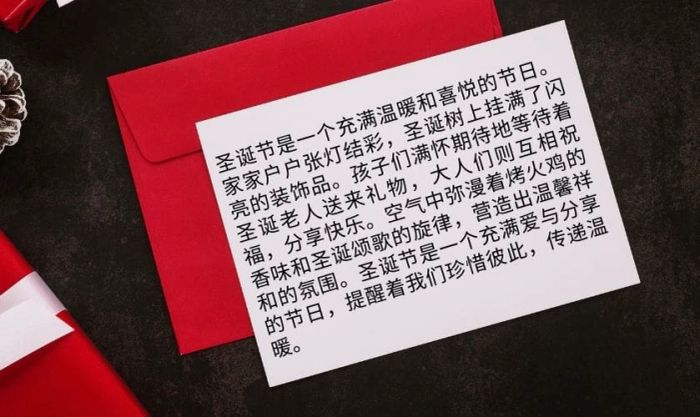 圣诞节是一个充满温暖和喜悦的节日。
家家户户张灯结彩，圣诞树上挂满了闪
亮的装饰品。孩子们满怀期待地等待着
圣诞老人送来礼物，大人们则互相祝
福，分享快乐。空气中弥漫着烤火鸡的
香味和圣诞颂歌的旋律，营造出温馨祥
和的氛围。圣诞节是一个充满爱与分享
的节日，提醒着我们珍惜彼此，传递温
暖。